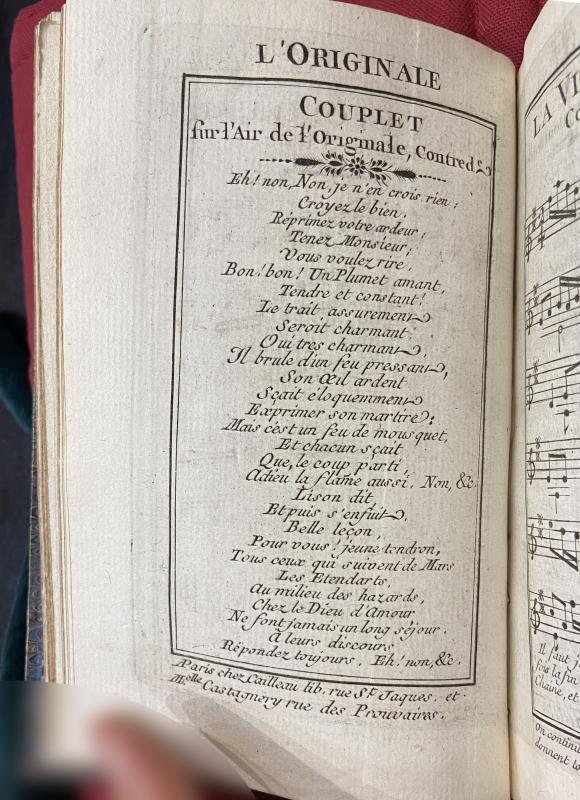 L'ORIGINALE
COUPLET
sur l'Air de l'Originale, Contred.
Eh! non, Non, je n'en crois rien:
Croyez le bien,
Réprimez votre ardeur;
Tenez Monsieur,
Vous voulez rire,
Bon! bon! Un Plumet amant,
Tendre et constant!
Le trait assurement
Seroit charmant
Oui tres charmant,
Il brule d'un feu pressant,
Son Œil ardent
Sçait éloquemment
Exprimer son martire:
Mais c'est un feu de mousquet,
Et chacun sçait
Que, le coup parti,
Adieu la flâme aussi. Non, &c.
Lison dit,
Et puis s'enfuit,
Belle leçon,
Pour vous! jeune tendron,
Tous ceux qui suivent de Mars
Les Etendarts,
Au milieu des hazards,
Chez le Dieu d'Amour
Ne font jamais un long séjour.
A leurs discours
Répondez toujours. Eh! non, &c.
A Paris chez Cailleau lib. rue St. Jaques. et
Melle Castagnery rue des Prouvaires.
LA VI
CO
Il faut
fois la fin
Chaine, et
On continu
donnent